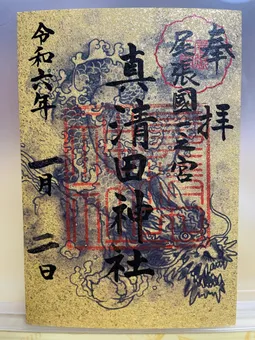 奉拝
尾張國一之宮
真清田神社
令和六年
一月二日